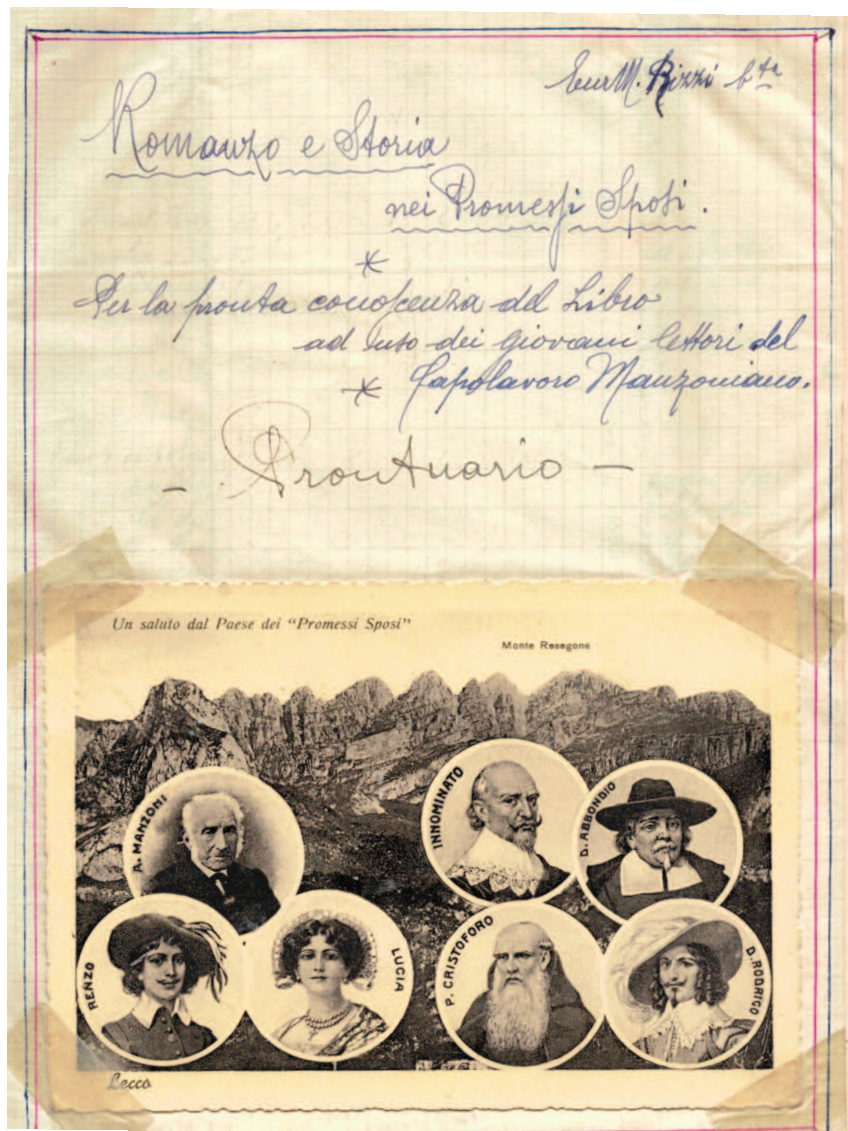 M. Rizzi
Romanzo e Storia
nei Promessi Sposi.
Per la pronta conoscenza del Libro
ad uso dei giovani lettori del
Capolavoro Manzoniano.
- Prontuario -
Un saluto dal Paese dei "Promessi Sposi"
Monte Resegone
A. MANZONI
INNOMINATO
D. ABBONDIO
RENZO
LUCIA
P. CRISTOFORO
D. RODRIGO
Lecco